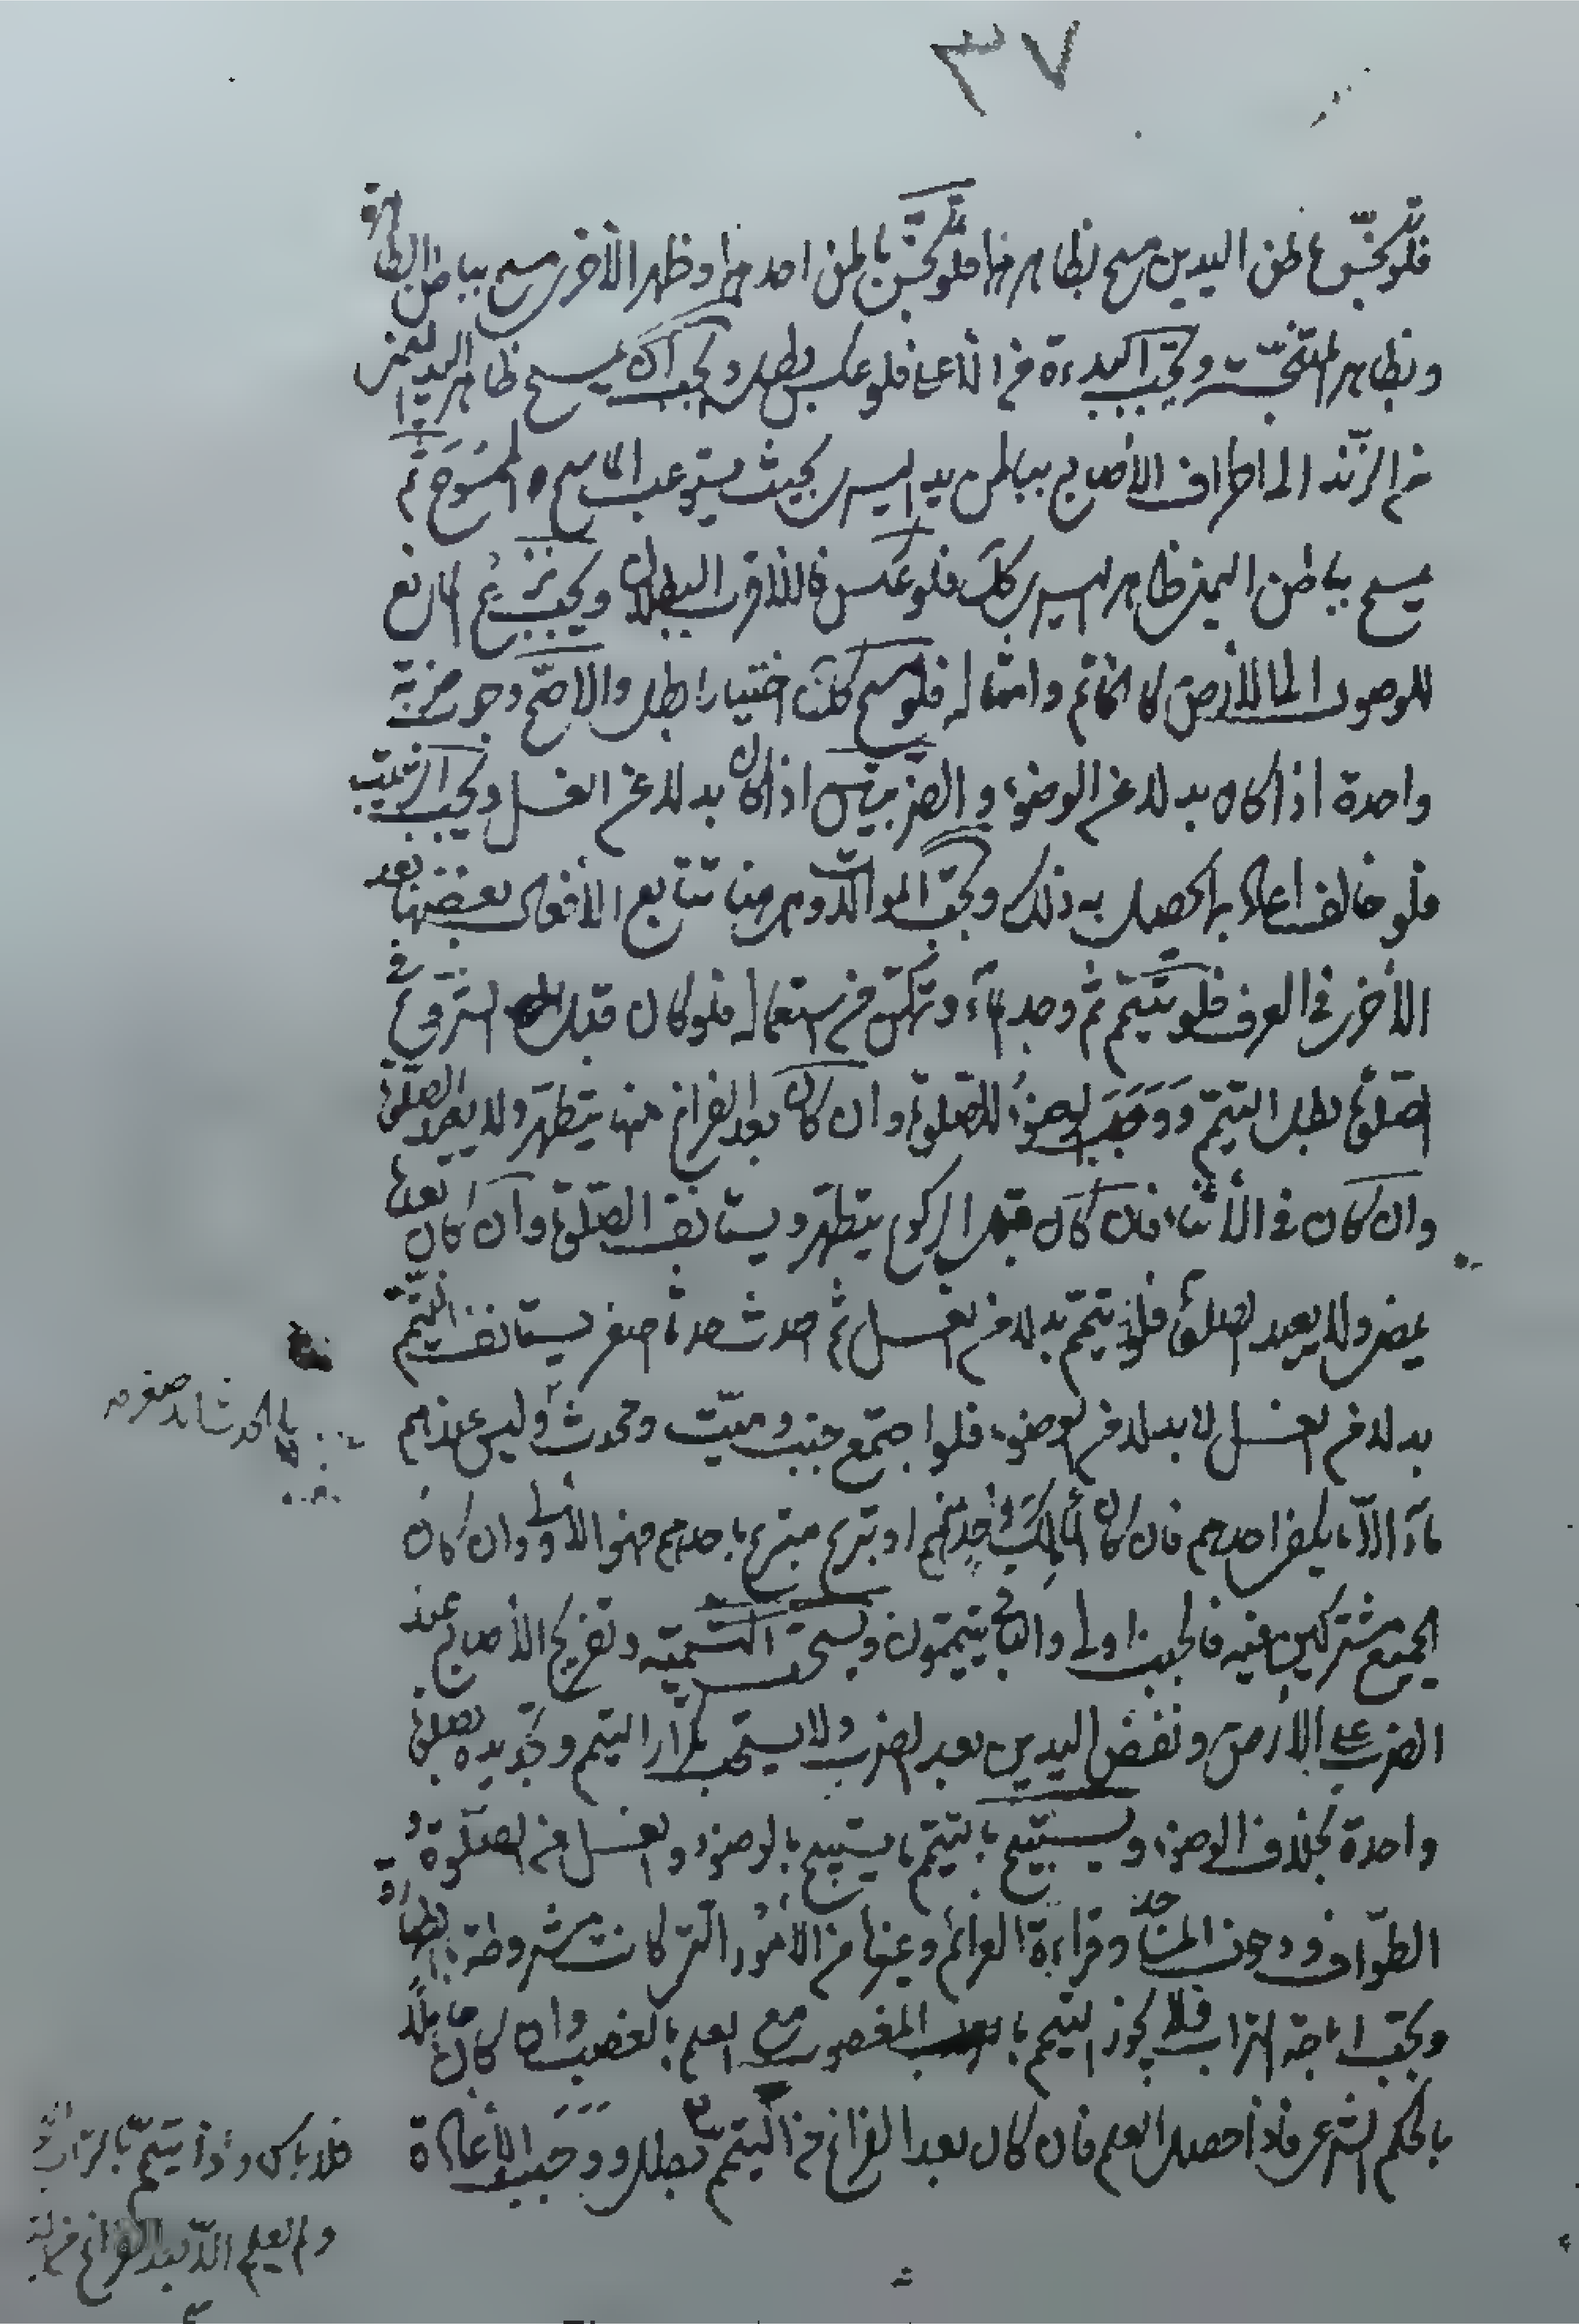 ٣٧
فلو تنجّس باطن اليدين مسح بظاهرهما فلو تنجّس باطن احدهما وظهر الأخرى مسح بباطن الطاهرة
وبظاهر المتنجّسة وتجب البدءة من الأعلى فلو عكس بطل وتجب ان يمسح ظاهر اليد اليمنى
من الزّند الى اطراف الأصابع بباطن يد اليسرى بحيث يستوعب الماسح والممسوح ثم
يمسح بباطن اليمنى ظاهر اليسرى كك فلو عكس فالأقرب البطلان ويجب نزع المانع
للوصول الى الأرض كالخاتم وامثاله فلو مسح كك اختيارا بطل والاصّح وجوب ضربة
واحدة اذا كان بدلا عن الوضوء والضربتين اذا كان بدلا عن الغسل ويجب الترتيب
فلو خالف اعاد بما يحصل به ذلك وتجب الموالات وهي هنا تتابع الأفعال بعضها بعد
الأخرى في العرف فلو تيّمم ثم وجد الماء وتمكّن من استعماله فلو كان قبل الشروع في
الصّلوة بطل التيمّم ووجب الوضوء للصّلوة وان كان بعد الفراغ منها يتطهّر ولا يعيد الصّلوة
وان كان في الأثناء فان كان قبل الركوع يتطهّر ويستانف الصّلوة وان كان بعدها
يمضى ولا يعيد الصلوة فلو تيمّم بدلا من الغسل ثم احدث حدثا اصغر يستانف التيّمم
بالحدث الاصغر
بدلا من الغسل لا بدلا من الوضوء فلو اجتمع جنب وميّت ومحدث وليس عندهم
ماء الّا ما يكفى احدهم فان كان المالك احدهم او تبرع متبرع باحدهم فهو الأولى وان كان
الجميع مشتركين فيه فالجنب اولى والباقي يتيممون ويستحب التسمية وتفريج الأصابع عند
الضرب على الأرض ونفض اليدين بعد الضرب ولا يستحب تكرار التيمم وتجديده لصلوة
واحدة بخلاف الوضوء ويستبيح بالتيمّم ما يستبيح بالوضوء والغسل من الصّلوة و
الطّواف ودخول المساجد وقراءة العزائم وغيرها من الأمور الّتى كانت مشروطة بالطهارة
وتجب اباحة التراب فلا يجوز التيمم بالتراب المغصوب مع العلم بالغصب وان كان جاهلاً
بالحكم الشرعى فاذا حصل العلم فان كان بعد الفراغ من التيمّم بطل ووجب الأعادة
فلا باس واذا تيمّم بالتراب
ولم يعلم الّا بعد الفراغ من